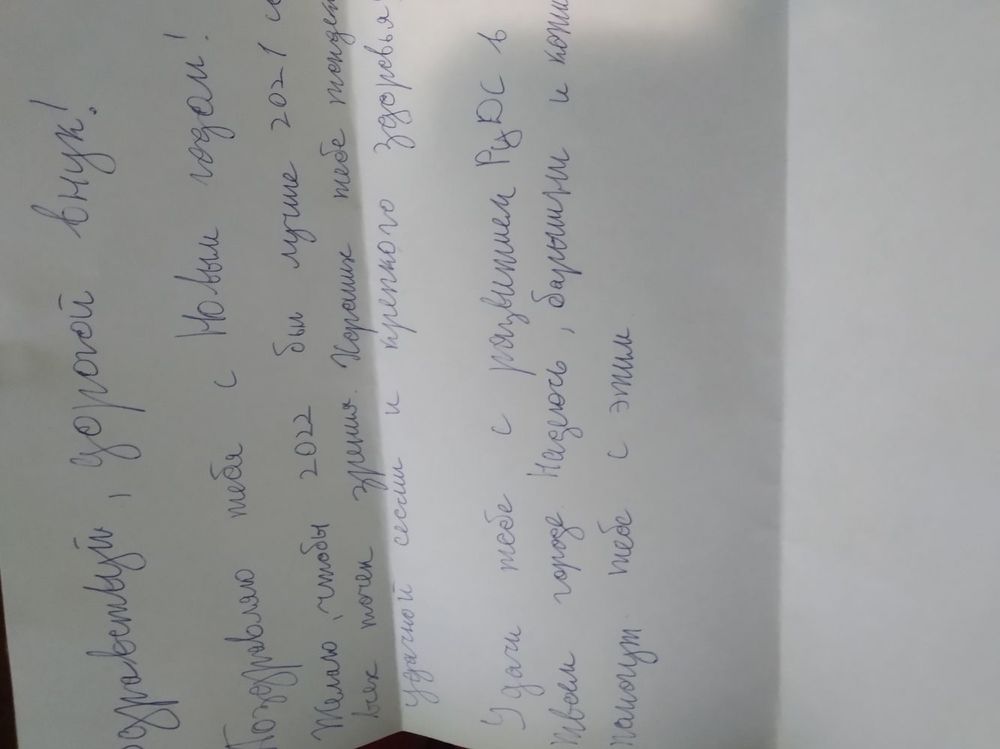 Здравствуй, дорогой внук!
Поздравляю тебя с Новым годом!
Желаю, чтобы 2022 был лучше 2021 со
всех точек зрения. Хороших тебе
удачной сессии и крепкого здоровья!
Удачи тебе с развитием РцДС в
твоем городе. Надеюсь, барышни и
помогут тебе с этим